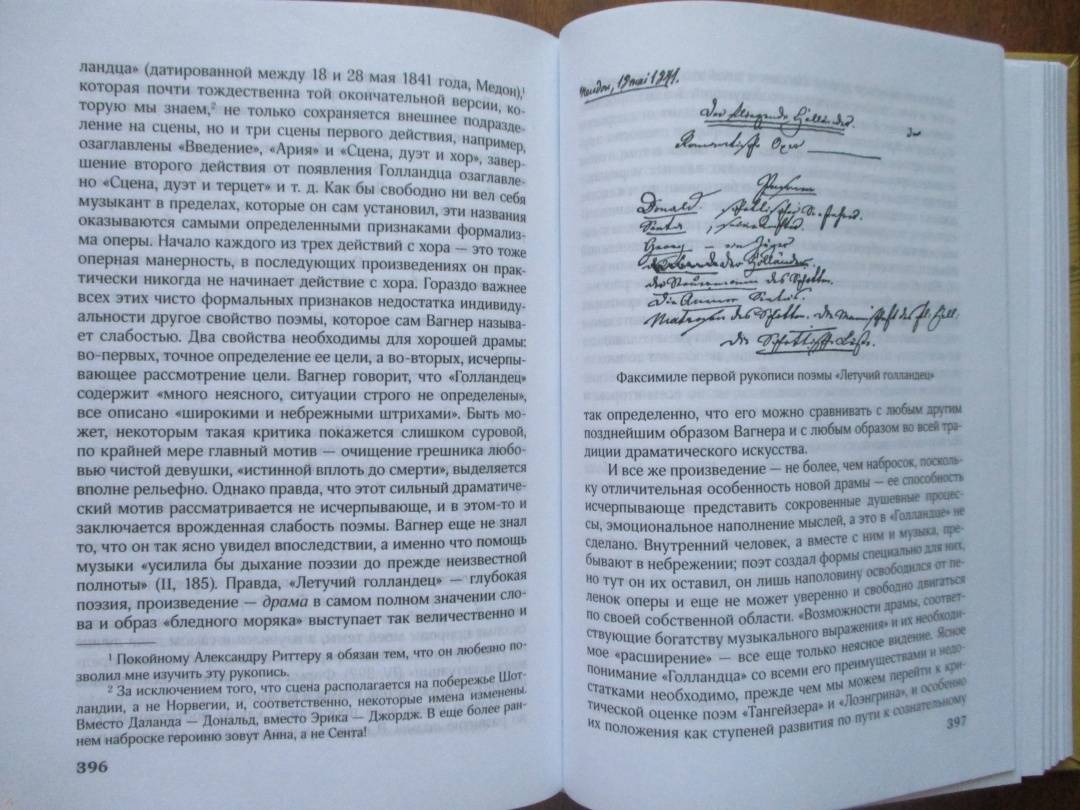 ландца» (датированной между 18 и 28 мая 1841 года, Медон),¹
которая почти тождественна той окончательной версии, ко-
торую мы знаем,² не только сохраняется внешнее подразде-
ление на сцены, но и три сцены первого действия, например,
озаглавлены «Введение», «Ария» и «Сцена, дуэт и хор», завер-
шение второго действия от появления Голландца озаглавле-
но «Сцена, дуэт и терцет» и т. д. Как бы свободно ни вел себя
музыкант в пределах, которые он сам установил, эти названия
оказываются самыми определенными признаками формализ-
ма оперы. Начало каждого из трех действий с хора — это тоже
оперная манерность, в последующих произведениях он прак-
тически никогда не начинает действие с хора. Гораздо важнее
всех этих чисто формальных признаков недостатка индивиду-
альности другое свойство поэмы, которое сам Вагнер называ-
ет слабостью. Два свойства необходимы для хорошей драмы:
во-первых, точное определение ее цели, а во-вторых, исчерпы-
вающее рассмотрение цели. Вагнер говорит, что «Голландец»
содержит «много неясного, ситуации строго не определены»,
все описано «широкими и небрежными штрихами». Быть мо-
жет, некоторым такая критика покажется слишком суровой,
по крайней мере главный мотив — очищение грешника любо-
вью чистой девушки, «истинной вплоть до смерти», выделяется
вполне рельефно. Однако правда, что этот сильный драматиче-
ский мотив рассматривается не исчерпывающе, и в этом-то и
заключается врожденная слабость поэмы. Вагнер еще не знал
то, что он так ясно увидел впоследствии, а именно что помощь
музыки «усилила бы дыхание поэзии до прежде неизвестной
полноты» (II, 185). Правда, «Летучий голландец» — глубокая
поэзия, произведение — драма в самом полном значении сло-
ва и образ «бледного моряка» выступает так величественно и
¹ Покойному Александру Риттеру я обязан тем, что он любезно по-
зволил мне изучить эту рукопись.
² За исключением того, что сцена располагается на побережье Шот-
ландии, а не Норвегии, и, соответственно, некоторые имена изменены.
Вместо Даланда — Дональд, вместо Эрика — Джордж. В еще более ран-
нем наброске героиню зовут Анна, а не Сента!
396
Meudon, 19 mai 1841.
Der fliegende Holländer.
Romantische Oper
Personen
Donald.
Senta
Georg — ein Jäger
der Holländer
der Steuermann des Schotten.
Die Amme Senta's.
Matrosen des Schotten. Die Mannschaft des fl. Holl.
Факсимиле первой рукописи поэмы «Летучий голландец»
так определенно, что его можно сравнивать с любым другим
позднейшим образом Вагнера и с любым образом во всей тра-
диции драматического искусства.
И все же произведение — не более, чем набросок, посколь-
ку отличительная особенность новой драмы — ее способность
исчерпывающе представить сокровенные душевные процес-
сы, эмоциональное наполнение мыслей, а это в «Голландце» не
сделано. Внутренний человек, а вместе с ним и музыка, пре-
бывают в небрежении; поэт создал формы специально для них,
но тут он их оставил, он лишь наполовину освободился от пе-
ленок оперы и еще не может уверенно и свободно двигаться
по своей собственной области. «Возможности драмы, соответ-
ствующие богатству музыкального выражения» и их необходи-
мое «расширение» — все еще только неясное видение. Ясное
понимание «Голландца» со всеми его преимуществами и недо-
статками необходимо, прежде чем мы можем перейти к кри-
тической оценке поэм «Тангейзера» и «Лоэнгрина», и особенно
их положения как ступеней развития по пути к сознательному
397